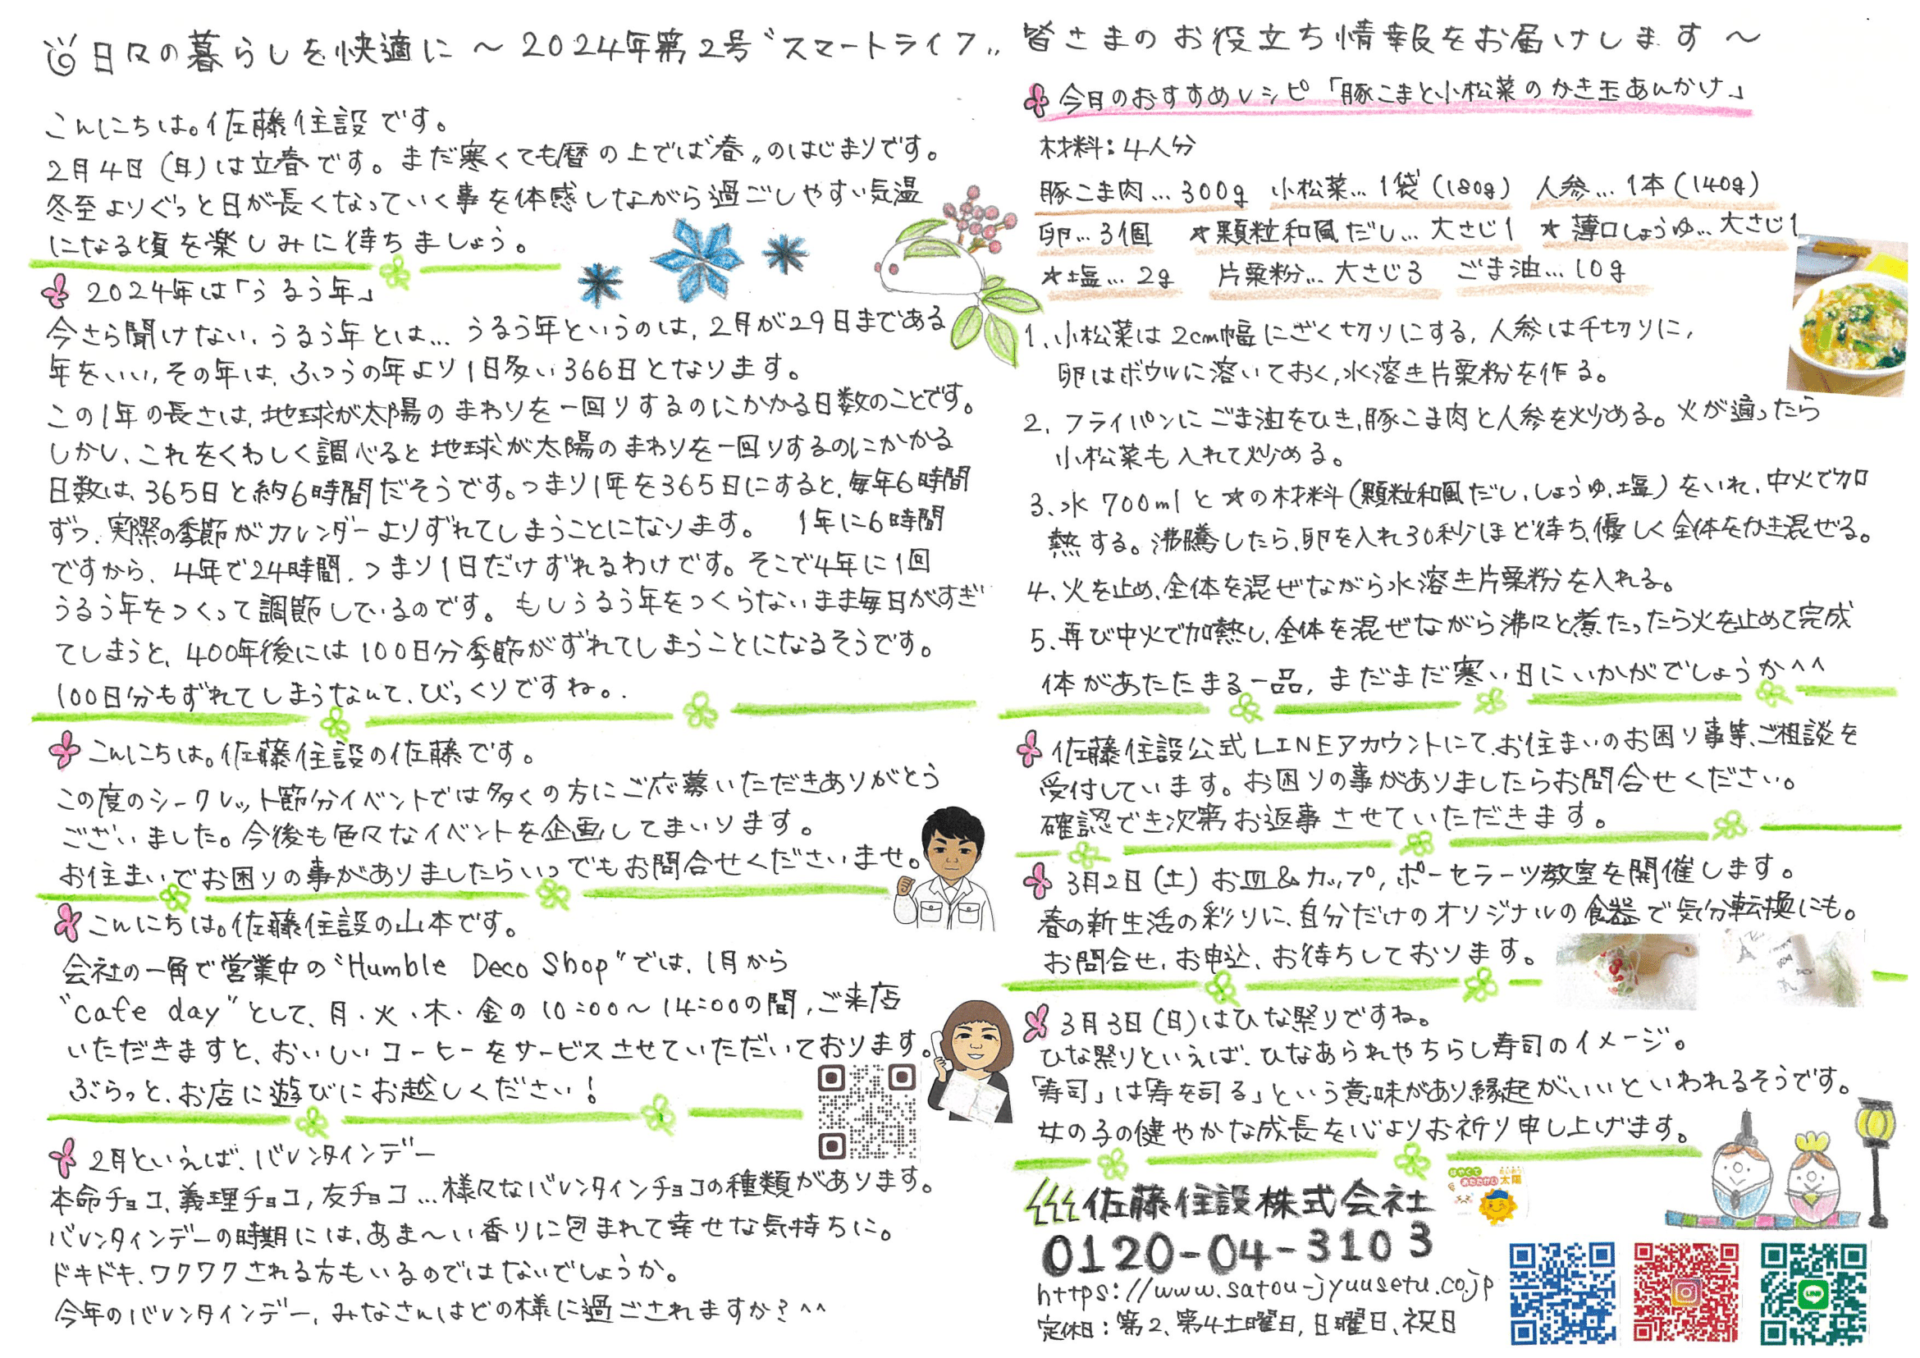 日々の暮らしを快適に 〜 2024年第2号〝スマートライフ〟 皆さまのお役立ち情報をお届けします 〜
こんにちは。佐藤住設です。
2月4日(日)は立春です。まだ寒くても暦の上では〝春〟のはじまりです。
冬至よりぐっと日が長くなっていく事を体感しながら過ごしやすい気温
になる頃を楽しみに待ちましょう。
2024年は「うるう年」
今さら聞けない、うるう年とは… うるう年というのは、2月が29日まである
年をいい、その年は、ふつうの年より1日多い366日となります。
この1年の長さは、地球が太陽のまわりを一回りするのにかかる日数のことです。
しかし、これをくわしく調べると地球が太陽のまわりを一回りするのにかかる
日数は、365日と約6時間だそうです。つまり1年を365日にすると、毎年6時間
ずつ、実際の季節がカレンダーよりずれてしまうことになります。 1年に6時間
ですから、4年で24時間、つまり1日だけずれるわけです。そこで4年に1回
うるう年をつくって調節しているのです。もしうるう年をつくらないまま毎日がすぎ
てしまうと、400年後には100日分季節がずれてしまうことになるそうです。
100日分もずれてしまうなんて、びっくりですね。
こんにちは。佐藤住設の佐藤です。
この度のシークレット節分イベントでは多くの方にご応募いただきありがとう
ございました。今後も色々なイベントを企画してまいります。
お住まいでお困りの事がありましたらいつでもお問合せくださいませ。
こんにちは。佐藤住設の山本です。
会社の一角で営業中の“Humble Deco Shop”では、1月から
“cafe day”として、月・火・木・金の10:00〜14:00の間、ご来店
いただきますと、おいしいコーヒーをサービスさせていただいております。
ぶらっと、お店に遊びにお越しください!
2月といえば、バレンタインデー
本命チョコ、義理チョコ、友チョコ…様々なバレンタインチョコの種類があります。
バレンタインデーの時期には、あま〜い香りに包まれて幸せな気持ちに。
ドキドキ、ワクワクされる方もいるのではないでしょうか。
今年のバレンタインデー、みなさんはどの様に過ごされますか?^^
今日のおすすめレシピ「豚こまと小松菜のかき玉あんかけ」
材料:4人分
豚こま肉…300g 小松菜…1袋(180g) 人参…1本(140g)
卵…3個 ★顆粒和風だし…大さじ1 ★薄口しょうゆ…大さじ1
★塩…2g 片栗粉…大さじ3 ごま油…10g
1. 小松菜は2cm幅にざく切りにする、人参は千切りに、
卵はボウルに溶いておく、水溶き片栗粉を作る。
2. フライパンにごま油をひき、豚こま肉と人参を炒める。火が通ったら
小松菜も入れて炒める。
3. 水700mlと★の材料(顆粒和風だし、しょうゆ、塩)をいれ、中火で加
熱する。沸騰したら、卵を入れ30秒ほど待ち、優しく全体をかき混ぜる。
4. 火を止め、全体を混ぜながら水溶き片栗粉を入れる。
5. 再び中火で加熱し、全体を混ぜながら沸々と煮たったら火を止めて完成
体があたたまる一品、まだまだ寒い日にいかがでしょうか^^
佐藤住設公式LINEアカウントにて、お住まいのお困り事等、ご相談を
受付しています。お困りの事がありましたらお問合せください。
確認でき次第お返事させていただきます。
3月2日(土)お皿&カップ、ポーセラーツ教室を開催します。
春の新生活の彩りに、自分だけのオリジナルの食器で気分転換にも。
お問合せ、お申込、お待ちしております。
3月3日(日)はひな祭りですね。
ひな祭りといえば、ひなあられやちらし寿司のイメージ。
「寿司」は「寿を司る」という意味があり、縁起がいいといわれるそうです。
女の子の健やかな成長を心よりお祈り申し上げます。
佐藤住設株式会社
0120-04-3103
https://www.satou-jyuusetu.co.jp
定休日:第2、第4土曜日、日曜日、祝日
LINE